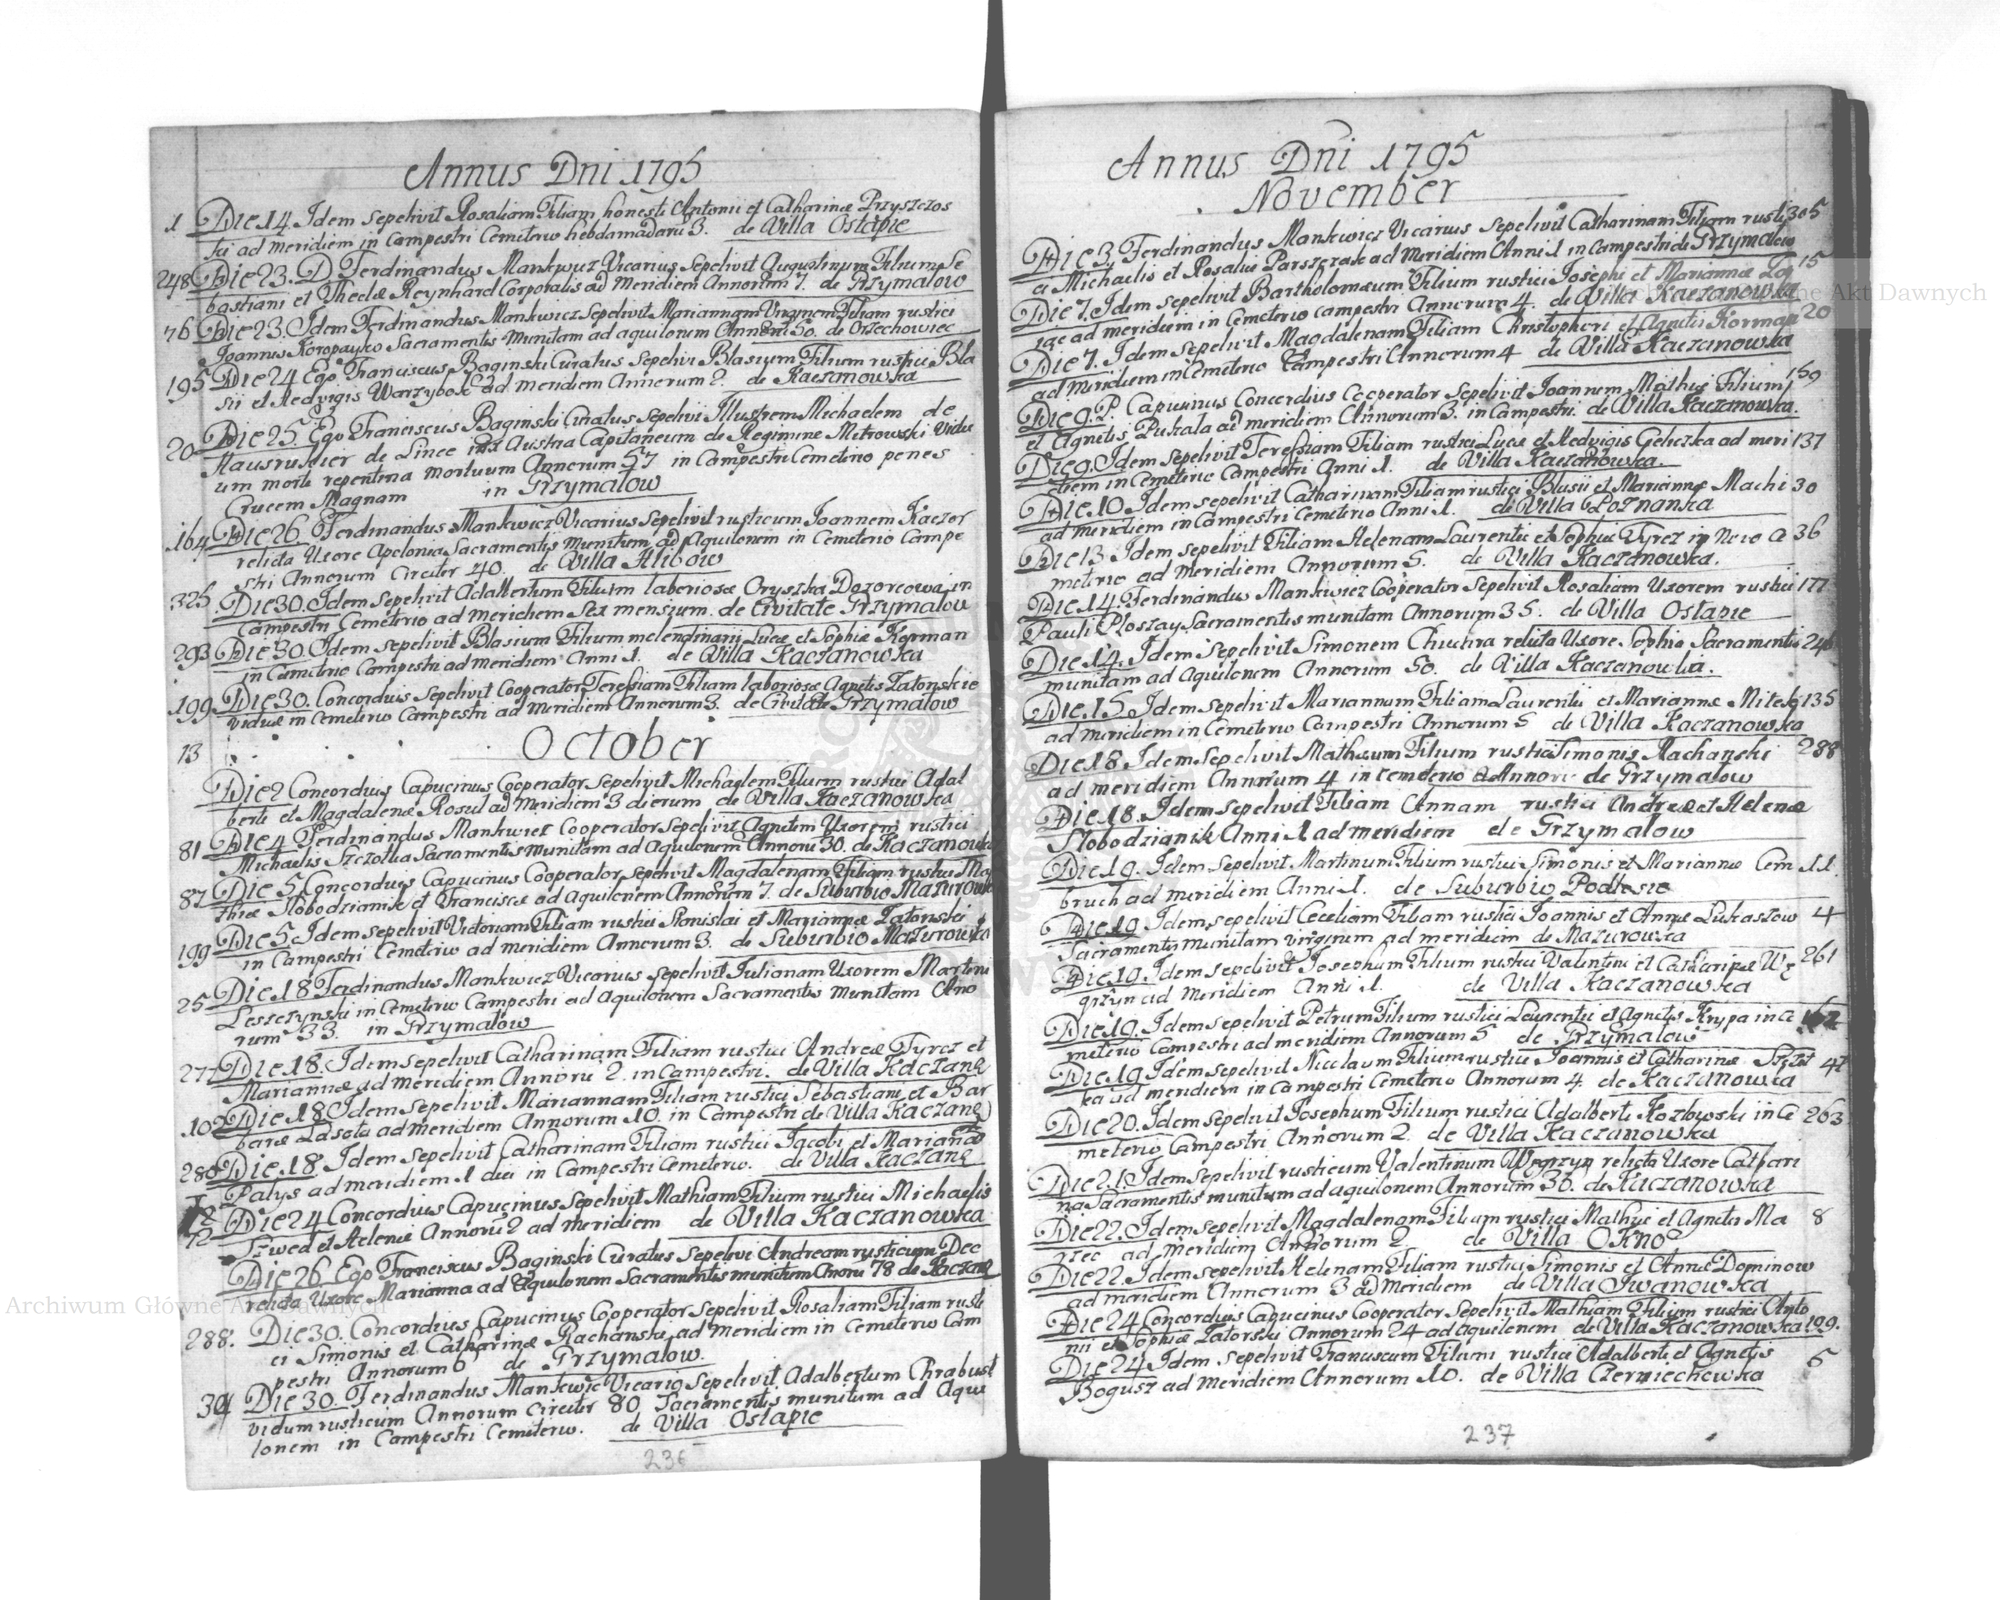 Annus Dni 1795
1 Die 14. Idem Sepelivit Rosaliam Filiam honesti Antonii et Catharinæ Przyszczos
ki ad meridiem in Campestri Cemeterio hebdomadaru 3. de Villa Ostapie
248 Die 23. D. Ferdinandus Mankwicz Vicarius Sepelivit Augustinum Filium Se
bastiani et Theclæ Reynhard Corporalis ad Meridiem Annorum 7. de Grzymalow
76 Die 23. Idem Ferdinandus Mankwicz Sepelivit Mariannam Virginem Filiam rustici
Joannis Koropayko Sacramentis Munitam ad aquilonem Annorū 50. de Orzechowiec
195 Die 24 Ego Franciscus Baginski Curatus Sepelivi Blasium Filium rustici Bla
sii et Hedvigis Warzybok ad meridiem Annorum 2. de Kaczanowka
20 Die 25. Ego Franciscus Baginski Curatus Sepelivi Illustrem Michaelem de
Hausrukier de Lince in Austria Capitaneum de Regimine Mitrowski Vidu
um morte repentina mortuum Annorum 57 in Campestri Cemeterio penes
Crucem Magnam in Grzymalow
164 Die 26. Ferdinandus Mankwicz Vicarius Sepelivit rusticum Joannem Kaczor
relicta Uxore Apelonia Sacramentis munitum ad Aquilonem in Cemeterio Campe
stri Annorum Circiter 40. de Villa Hlibow
325 Die 30. Idem Sepelivit Adalbertum Filium laboriosæ Oryszka Dozorcowa in
Campestri Cemeterio ad meridiem Sex mensium. de Civitate Grzymalow
293 Die 30. Idem sepelivit Blasium Filium molendinarii Lucæ et Sophiæ Korman
in Cemeterio Campestri ad meridiem Anni 1. de Villa Kaczanowka
199 Die 30. Concordius Sepelivit Cooperator Teressiam Filiam laboriosæ Agnetis Zatonskie
viduæ in Cemeterio Campestri ad Meridiem Annorum 3. de Civitate Grzymalow
October
13 Die 2 Concordius Capucinus Cooperator Sepelivit Michaelem Filium rustici Adal
berti et Magdalenæ Rosul ad Meridiem 3 dierum de Villa Kaczanowka
81 Die 4 Ferdinandus Mankwicz Cooperator Sepelivit Agnetem Uxorem rustici
Michaelis Szczotka Sacramentis munitam ad Aquilonem Annorū 30. de Kaczanowka
87 Die 5. Concordius Capucinus Cooperator Sepelivit Magdalenam Filiam rustici Ma
thiæ Slobodzianik et Franciscæ ad Aquilonem Annorum 7. de Suburbio Mazurowka
199 Die 5. Idem sepelivit Victoriam Filiam rustici Stanislai et Mariannæ Zatonski
in Campestri Cemeterio ad meridiem Annorum 3. de Suburbio Mazurowka
25 Die 18 Ferdinandus Mankwicz Vicarius sepelivit Julianam Uxorem Martini
Leszczynski in Cemeterio Campestri ad aquilonem Sacramentis munitam Ano
rum 33. in Grzymalow
277 Die 18. Idem sepelivit Catharinam Filiam rustici Andreæ Tyrcz et
Mariannæ ad meridiem Annorū 2. in Campestri. de Villa Kaczano
102 Die 18. Idem Sepelivit Mariannam Filiam rustici Sebastiani et Bar
baræ Lasota ad meridiem Annorum 10. in Campestri de Villa Kaczano
280 Die 18. Idem Sepelivit Catharinam Filiam rustici Jacobi et Mariannæ
Palys ad meridiem 1 diei in Campestri Cemeterio. de Villa Kaczano
72 Die 24 Concordius Capucinus Sepelivit Mathiam Filium rustici Michaelis
Szwed et Helenæ Annorū 2 ad meridiem de Villa Kaczanowka
Die 26. Ego Franciscus Baginski Curatus Sepelivi Andream rusticum Dec
relicta Uxore Marianna ad Aquilonem Sacramentis munitum Anorū 78 de Kaczano
288. Die 30. Concordius Capucinus Cooperator Sepelivit Rosaliam Filiam rusti
ci Simonis et Catharinæ Rachanski ad Meridiem in Cemeterio Cam
pestri Annorum 6 de Grzymalow.
304 Die 30. Ferdinandus Mankwic Vicario Sepelivit Adalbertum Chrabust
vidum rusticum Annorum Circiter 80 Sacramentis munitum ad Aqui
lonem in Campestri Cemeterio. de Villa Ostapie
236
Annus Dni 1795
November
Die 3. Ferdinandus Mankwicz Vicarius Sepelivit Catharinam Filiam rusti 305
ci Michaelis et Rosaliæ Parszczak ad Meridiem Anni 1 in Campestri de Grzymalow
Die 7. Idem sepelivit Bartholomæum Filium rustici Josephi et Mariannæ Zap 15
ad meridiem in Cemeterio campestri Annorum 4. de Villa Kaczanowka
Die 7. Idem sepelivit Magdalenam Filiam Christophori et Agnetis Korman 20
ad Meridiem in Cemeterio Campestri Annorum 4 de Villa Kaczanowka
Die 9. P. Capucinus Concordius Cooperator Sepelivit Joannem Mathiæ Filium 159
et Agnetis Pukala ad meridiem Annorum 3. in Campestri. de Villa Kaczanowka.
Die 9. Idem Sepelivit Teressiam Filiam rustici Lucæ et Hedvigis Geliczka ad meri 137
diem in Cemeterio Campestri Anni 1. de Villa Kaczanowka.
Die 10 Idem sepelivit Catharinam Filiam rustici Blasii et Mariannæ Machi 30
ad meridiem in Campestri Cemeterio Anni 1. de Villa Poznanka
Die 13. Idem sepelivit Filiam Helenam Laurentii et Sophiæ Tyrcz in Novo Ce 36
meterio ad Meridiem Annorum 5. de Villa Kaczanowka.
Die 14. Ferdinandus Mankwicz Cooperator Sepelivit Rosaliam Uxorem rustici 177
Pauli Ploszay Sacramentis munitam Annorum 35. de Villa Ostapie
Die 14. Idem Sepelivit Simonem Chuchra relicta Uxore Sophia Sacramentis 246
munitam ad Aquilonem Annorum 50. de Villa Kaczanowka.
Die 15 Idem Sepelivit Mariannam Filiam Laurentii et Mariannæ Mitek 135
ad meridiem in Cemeterio Campestri Annorum 5 de Villa Kaczanowka
Die 18 Idem Sepelivit Mathæum Filium rustici Simonis Rachanski 288
ad meridiem Annorum 4 in cemeterio de Grzymalow
Die 18. Idem sepelivit Filiam Annam rustici Andreæ et Helenæ
Slobodzianik Anni 1 ad meridiem de Grzymalow
Die 19. Idem Sepelivit Martinum Filium rustici Simonis et Mariannæ Cem 11.
bruch ad meridiem Anni 1. de Suburbio Podlesie
Die 19 Idem sepelivit Ceceliam Filiam rustici Joannis et Annæ Lukaszow 4
Sacramentis munitam virginem ad meridiem de Mazurowka
Die 19. Idem sepelivit Josephum Filium rustici Valentini et Catharinæ Wę 261
grzyn ad Meridiem Anni 1. de Villa Kaczanowka
Die 19. Idem sepelivit Petrum Filium rustici Laurentii et Agnetis Krypa in Ce
meterio Campestri ad meridiem Annorum 5 de Grzymalow
Die 19 Idem sepelivit Nicolaum Filium rustici Joannis et Catharinæ 41
ka ad meridiem in Campestri Cemeterio Annorum 4 de Kaczanowka
Die 20. Idem Sepelivit Josephum Filium rustici Adalberti Kozłowski in Ce 263
meterio Campestri Annorum 2. de Villa Kaczanowka
Die 21 Idem sepelivit rusticum Valentinum Węgrzyn relicta Uxore Cathari
na Sacramentis munitum ad aquilonem Annorum 36. de Kaczanowka
Die 22. Idem sepelivit Magdalenam Filiam rustici Mathiæ et Agnetis Ma 8
rzec ad Meridiem Annorum 2 de Villa Okno
Die 22. Idem sepelivit Helenam Filiam rustici Simonis et Annæ Dominow
ad meridiem Annorum 3 ad Meridiem de Villa Iwanowka
Die 24 Concordius Capucinus Cooperator Sepelivit Mathiam Filium rustici Anto
nii et Sophiæ Zatorski Annorum 24 ad aquilonem de Villa Kaczanowka 199.
Die 24 Idem Sepelivit Franciscum Filium rustici Adalberti et Agnetis 5
Bogusz ad Meridiem Annorum 10. de Villa Czerniechowka
237
Archiwum Główne Akt Dawnych